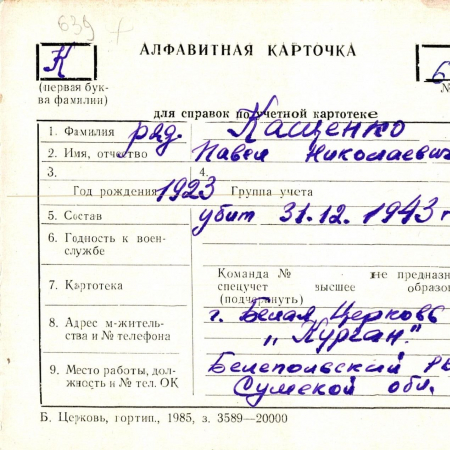 639
АЛФАВИТНАЯ КАРТОЧКА
К
Б
(первая бук-
ва фамилии)
№
для справок по учетной картотеке
1. Фамилия ряд. Кащенко
2. Имя, отчество Павел Николаевич
3. 4.
Год рождения 1923 Группа учета
5. Состав убит 31.12.1943 г
6. Годность к воен-
службе
Команда № не предназн
7. Картотека спецучет высшее образо
(подчеркнуть)
8. Адрес м-житель-
ства и № телефона
г. Белая Церковь
„Курган."
9. Место работы, дол-
жность и № тел. ОК
Белопольский
Сумской обл.
Б. Церковь, гортип., 1985, з. 3589—20000